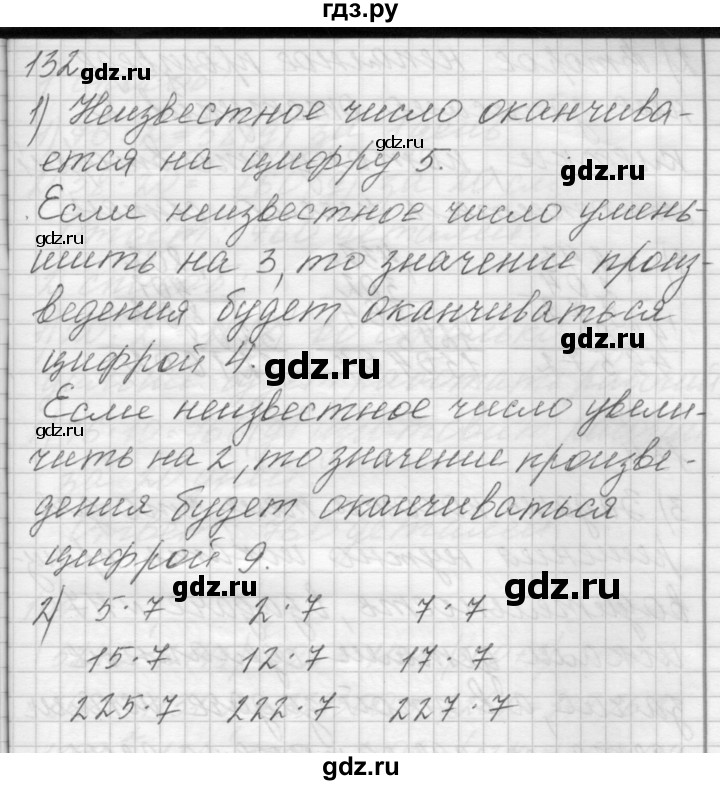 гдз.ру
132
gdz.ru
1) Неизвестное число оканчива-
gdz.ru
ется на цифру 5.
gdz.ru
Если неизвестное число умень-
gdz.ru
шить на 3, то значение произ-
ведения будет оканчиваться
gdz.ru
цифрой 4.
gdz.ru
Если неизвестное число увели-
gdz.ru
чить на 2, то значение произве-
дения будет оканчиваться
цифрой 9.
gdz.ru
gdz.ru
2) 5·7 2·7 7·7
15·7 12·7 17·7
225·7 222·7 227·7
gdz.ru